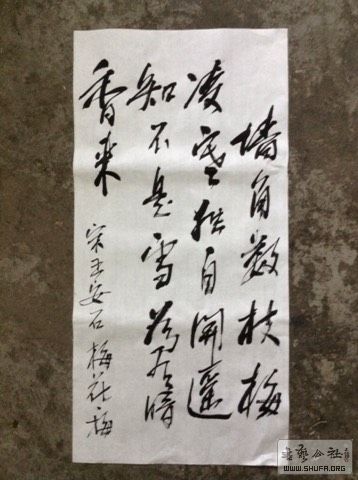 墙角数枝梅
凌寒独自開遥
知不是雪为有暗
香来
宋王安石梅花
书艺公社
WWW.SHUFA.ORG